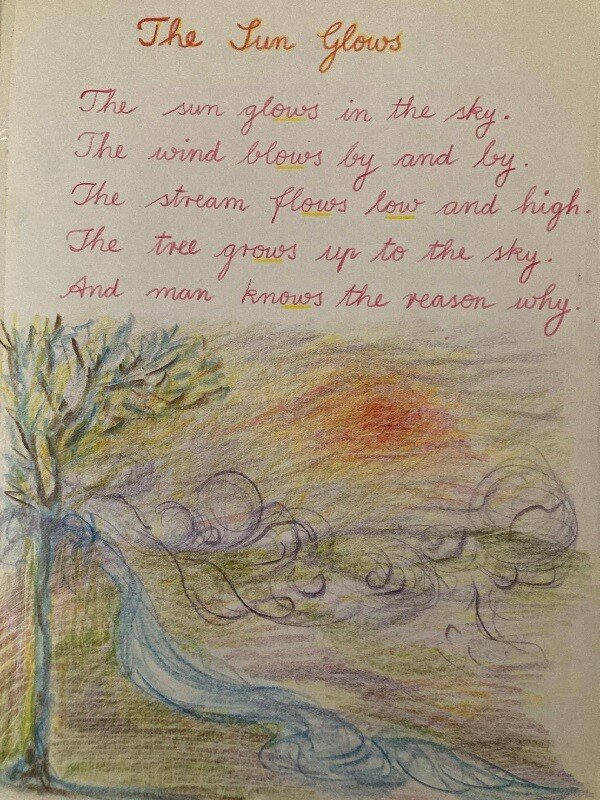 The Sun Glows
The sun glows in the sky.
The wind blows by and by.
The stream flows low and high.
The tree grows up to the sky.
And man knows the reason why.